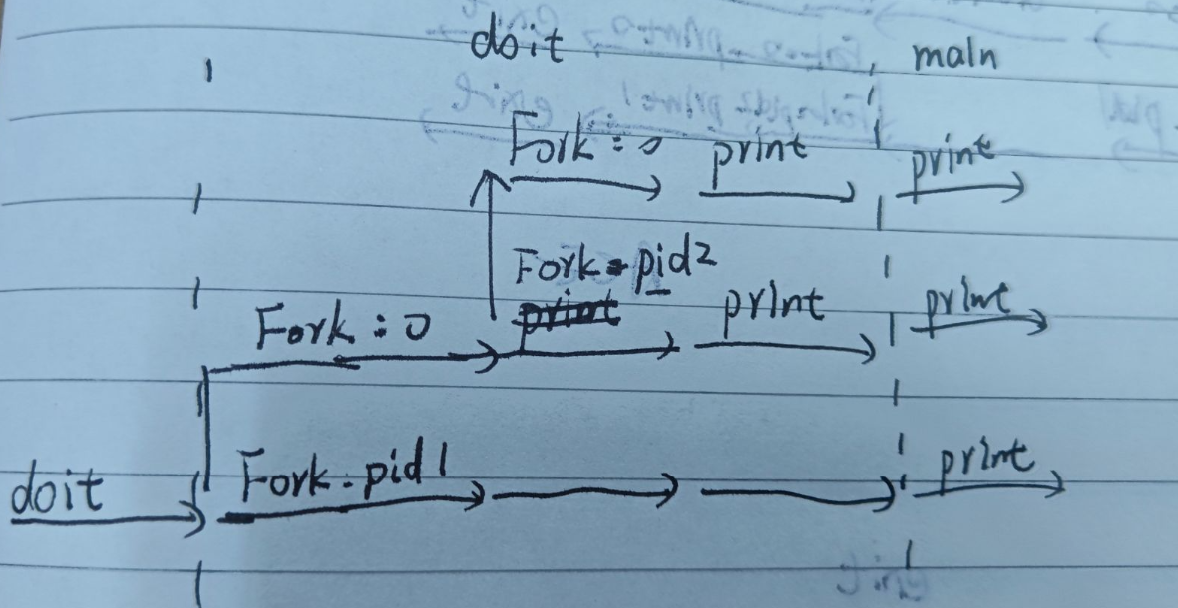 doit main
Fork : 0 print print
Fork = pid2
print print print
Fork : 0
doit Fork : pid1 print